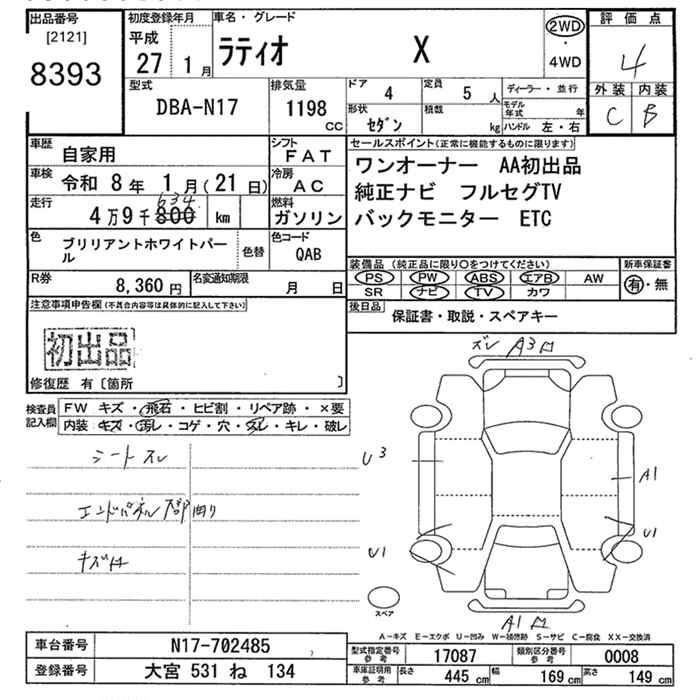 出品番号
[2121]
8393
初度登録年月
平成
27 1月
車名・グレード
ラティオ X
2WD
・
4WD
評価点
4
外装 内装
C B
型式
DBA-N17
排気量
1198
CC
ドア
4
定員
5 人
ディーラー・並行
形状
セダン
積数
kg
モデル年式 年
ハンドル 左・右
車歴
自家用
シフト
FAT
車検
令和 8年 1月(21日)
冷房
AC
走行
634
4万9千800 km
燃料
ガソリン
色
ブリリアントホワイトパール
色替
色コード
QAB
R券
8,360 円
名変通知期限
月 日
セールスポイント(正常に機能するものに限ります)
ワンオーナー AA初出品
純正ナビ フルセグTV
バックモニター ETC
装備品(純正品に限り○をつけてください)
新車保証書
PS PW ABS エアB AW
SR ナビ TV カワ
有・無
後日品
保証書・取説・スペアキー
注意事項申告欄(不具合内容等は具体的に記入して下さい)
初出品
修復歴 有〔箇所 〕
検査員
記入欄
FW キズ・飛石・ヒビ割・リペア跡・×要
内装・キズ・汚レ・コゲ・穴・スレ・キレ・破レ
シートスレ
エンドパネル 曲り
ズレ A3
U3
A1
U1
U1
スペア
A1
A-キズ E-エクボ U-凹み W-補修跡 S-サビ C-腐食 XX-交換済
車台番号
N17-702485
登録番号
大宮 531 ね 134
型式指定番号
参考
17087
類別区分番号
参考
0008
車庫証明用
参考
長さ 445 cm 幅 169 cm 高さ 149 cm